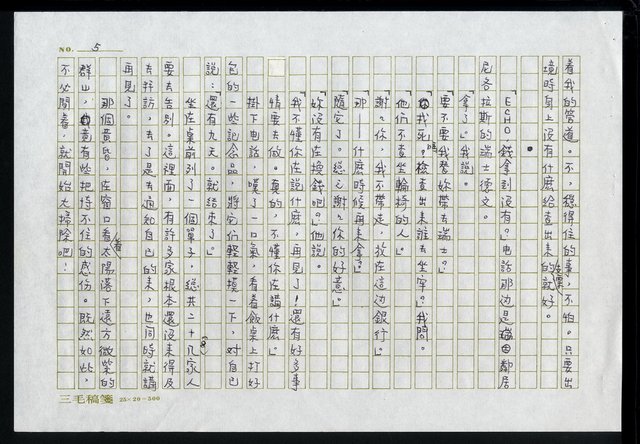 NO. 5
着我的管道,不,穩得住的事,不怕。只要出
境時身上沒有什麼給查出來的支票就好。
「ECHO 錢拿到沒有?」電話那邊是瑞國鄰居
尼各拉斯的瑞士德文。
「拿了。」我說。
「要不要我替妳帶去瑞士?」
「我死。檢查出來誰去坐牢?」我問。
「他們不查坐輪椅的人。」
「謝謝你,我不帶走,放在這邊銀行。」
「那——什麼時候再來拿?」
「隨它了。總之謝謝你的好意。」
「妳沒有在換錢吧?」他說。
「我不懂你在說什麼,再見了!還有好多事
情要去做。真的,不懂你在講什麼。」
掛下電話,嘆了一口氣,看看飯桌上打好
包的一些記念品,將它們輕輕摸一下,對自己
說:「還有九天。就結束了。」
坐在桌前列了一個單子,總共二十幾家人(8)
要去告別。這裡面,有許多家根本還沒來得及
去拜訪,去了是去通知自己的來,也同時就講
再見了。
那個黃昏,在窗口看太陽落下遠方微紫的
群山,竟有些把持不住的感傷。既然如此,
不必閒着,就開始大掃除吧!
三毛稿箋 25×20=500